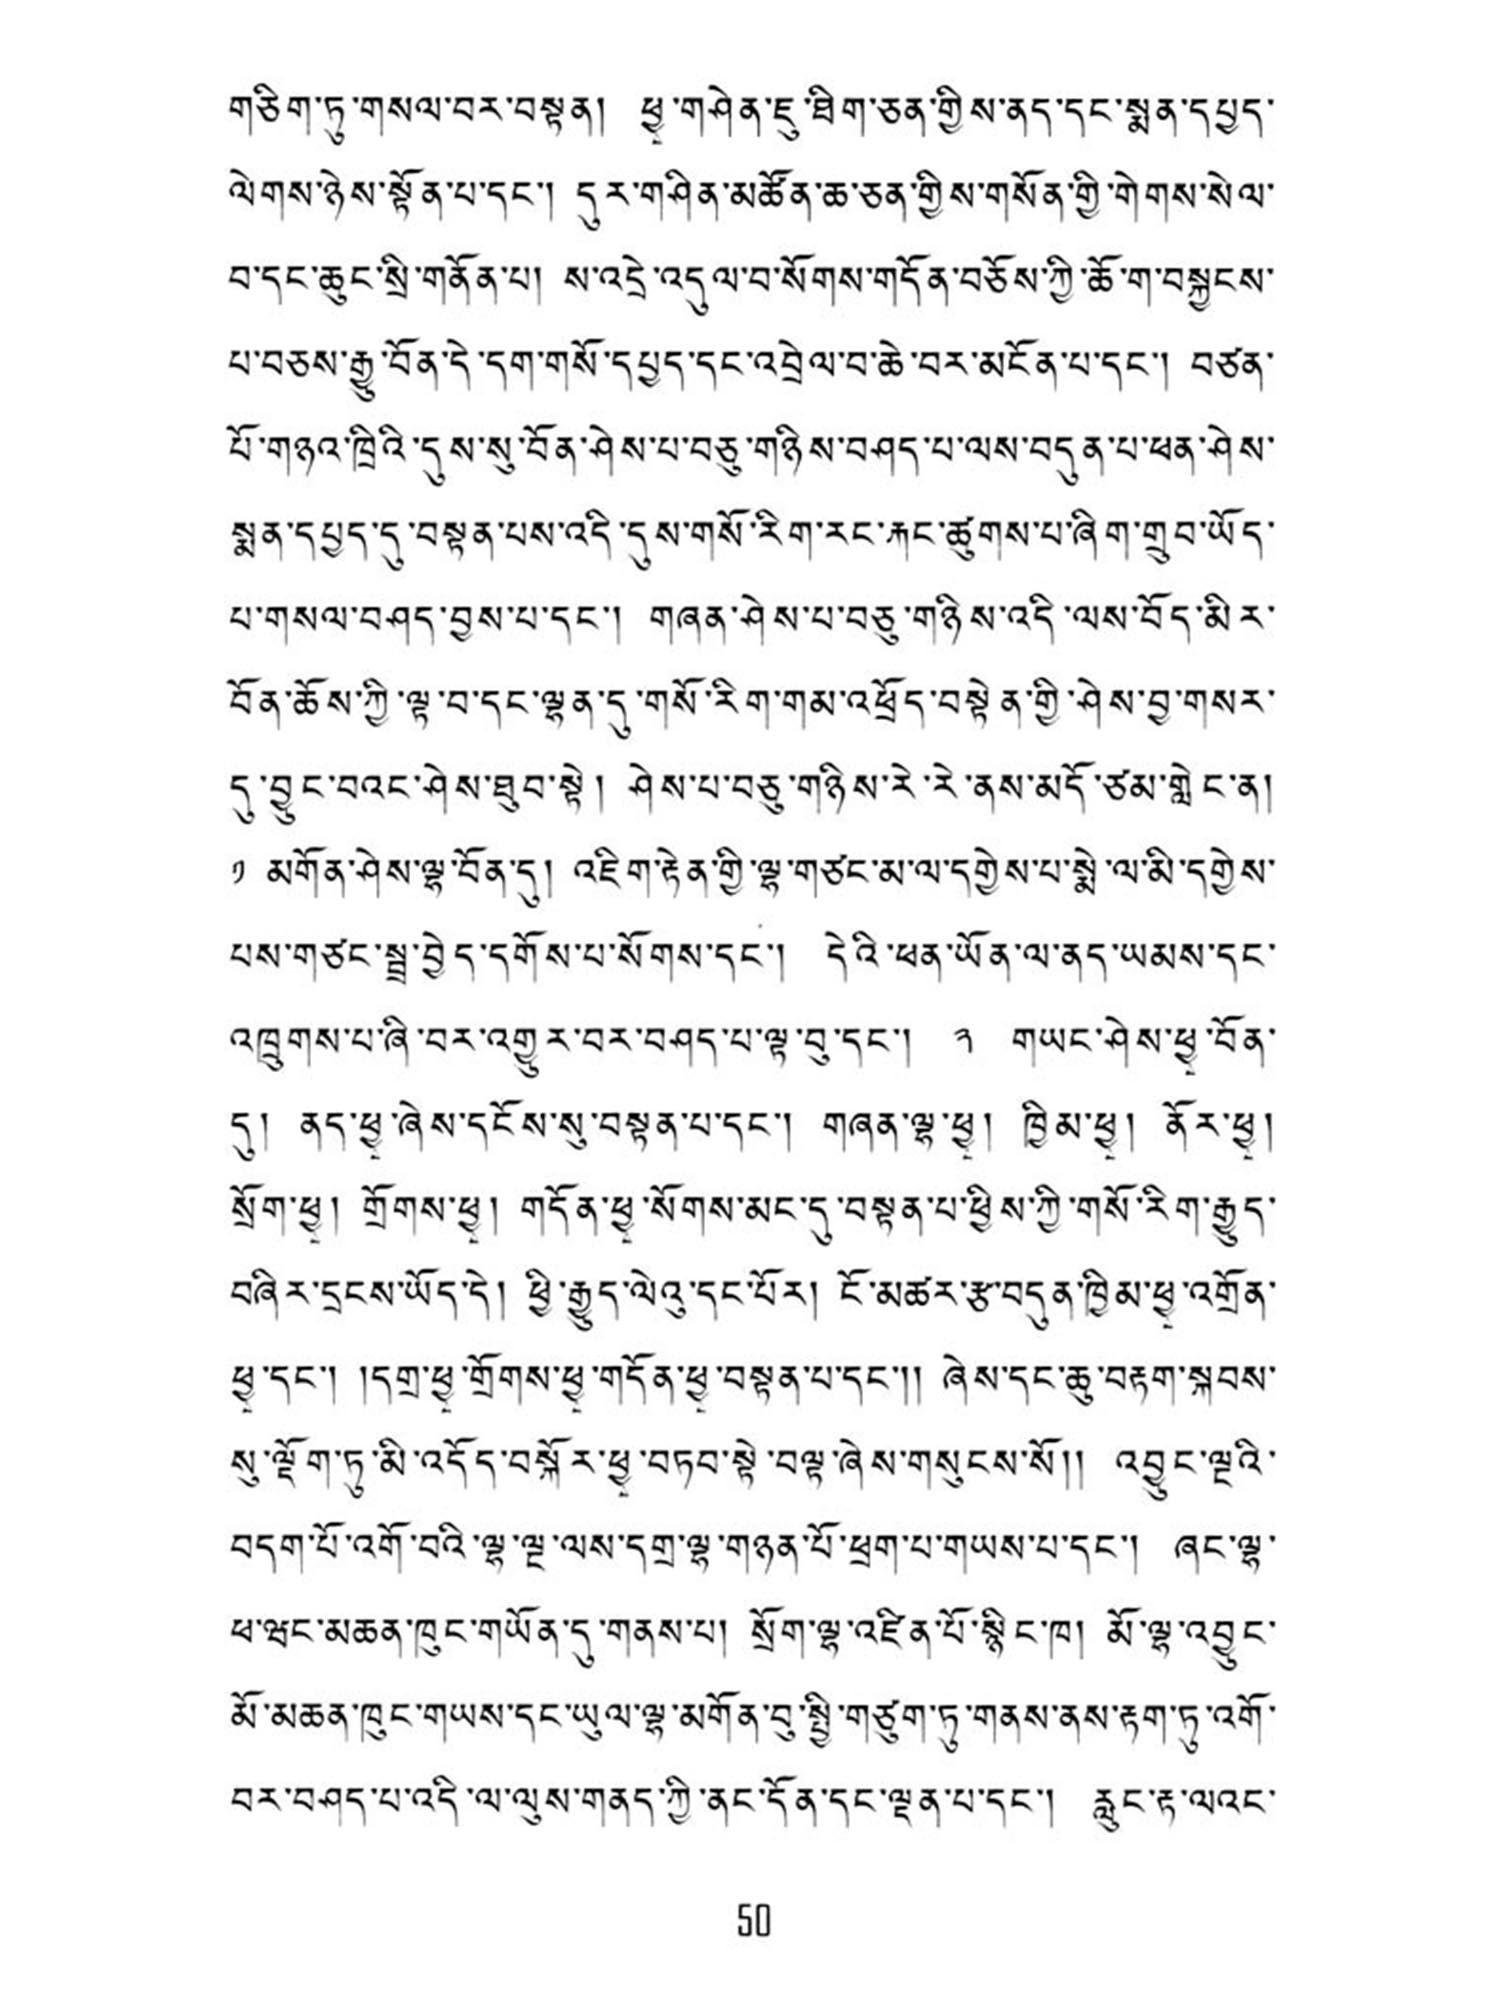 གཅིག་ཏུ་གསལ་བར་བསྟན། ཕྱྭ་གཤེན་ཇུ་ཐིག་ཅན་གྱིས་ནད་དང་སྨན་དཔྱད་
ལེགས་ཉེས་སྟོན་པ་དང་། དུར་གཤིན་མཚོན་ཆ་ཅན་གྱིས་གསོན་གྱི་གེགས་སེལ་
བ་དང་ཆུང་སྲི་གནོན་པ། ས་འདྲེ་འདུལ་བ་སོགས་གདོན་བཅོས་ཀྱི་ཆོ་ག་བསྐྱངས་
པ་བཅས་རྒྱུ་བོན་དེ་དག་གསོ་དཔྱད་དང་འབྲེལ་བ་ཆེ་བར་མངོན་པ་དང་། བཙན་
པོ་གཉའ་ཁྲིའི་དུས་སུ་བོན་ཤེས་པ་བཅུ་གཉིས་བཤད་པ་ལས་བདུན་པ་ཕན་ཤེས་
སྨན་དཔྱད་དུ་བསྟན་པས་འདི་དུས་གསོ་རིག་རང་རྐང་ཚུགས་པ་ཞིག་གྲུབ་ཡོད་
པ་གསལ་བཤད་བྱས་པ་དང་། གཞན་ཤེས་པ་བཅུ་གཉིས་འདི་ལས་བོད་མིར་
བོན་ཆོས་ཀྱི་ལྟ་བ་དང་ལྷན་དུ་གསོ་རིག་གམ་འཕྲོད་བསྟེན་གྱི་ཤེས་བྱ་གསར་
དུ་བྱུང་བའང་ཤེས་ཐུབ་སྟེ། ཤེས་པ་བཅུ་གཉིས་རེ་རེ་ནས་མདོ་ཙམ་གླེང་ན།
༡ མགོན་ཤེས་ལྷ་བོན་དུ། འཇིག་རྟེན་གྱི་ལྷ་གཙང་མ་ལ་དགྱེས་པ་སྨེ་ལ་མི་དགྱེས་
པས་གཙང་སྦྲ་བྱེད་དགོས་པ་སོགས་དང་། དེའི་ཕན་ཡོན་ལ་ནད་ཡམས་དང་
འཁྲུགས་པ་ཞི་བར་འགྱུར་བར་བཤད་པ་ལྟ་བུ་དང་། ༢ གཡང་ཤེས་ཕྱྭ་བོན་
དུ། ནད་ཕྱྭ་ཞེས་དངོས་སུ་བསྟན་པ་དང་། གཞན་ལྷ་ཕྱྭ། ཁྱིམ་ཕྱྭ། ནོར་ཕྱྭ།
སྲོག་ཕྱྭ། གྲོགས་ཕྱྭ། གདོན་ཕྱྭ་སོགས་མང་དུ་བསྟན་པ་ཕྱིས་ཀྱི་གསོ་རིག་རྒྱུད་
བཞིར་དྲངས་ཡོད་དེ། ཕྱི་རྒྱུད་ལེའུ་དང་པོར། ངོ་མཚར་རྩ་བདུན་ཁྱིམ་ཕྱྭ་འགྲོན་
ཕྱྭ་དང་། །དགྲ་ཕྱྭ་གྲོགས་ཕྱྭ་གདོན་ཕྱྭ་བསྟན་པ་དང་།། ཞེས་དང་ཆུ་བརྟག་སྐབས་
སུ་ལྡོག་ཏུ་མི་འདོད་བསྐོར་ཕྱྭ་བཏབ་སྟེ་བལྟ་ཞེས་གསུངས་སོ།། འབྱུང་ལྔའི་
བདག་པོ་འགོ་བའི་ལྷ་ལྔ་ལས་དགྲ་ལྷ་གཉན་པོ་ཕྲག་པ་གཡས་པ་དང་། ཞང་ལྷ་
ཕ་ཝང་མཆན་ཁུང་གཡོན་དུ་གནས་པ། སྲོག་ལྷ་འཛིན་པོ་སྙིང་ཁ། མོ་ལྷ་འབྱུང་
མོ་མཆན་ཁུང་གཡས་དང་ཡུལ་ལྷ་མགོན་བུ་སྤྱི་གཙུག་ཏུ་གནས་ནས་རྟག་ཏུ་འགོ་
བར་བཤད་པ་འདི་ལ་ལུས་གནད་ཀྱི་ནང་དོན་དང་ལྡན་པ་དང་། རླུང་རྟ་ལའང་
50